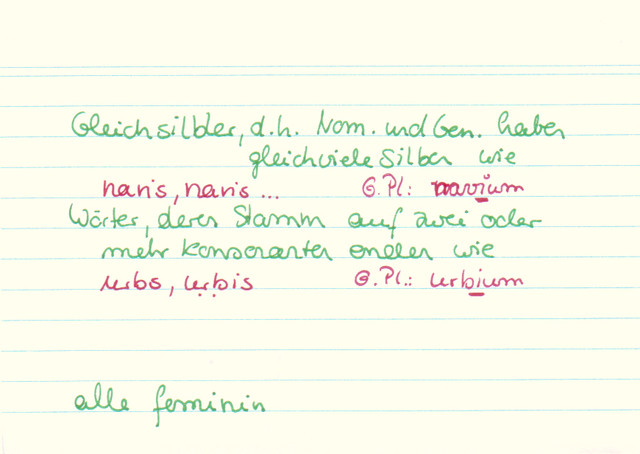 Gleichsilbler, d.h. Nom. und Gen. haben
gleichviele Silben wie
navis, navis ... G.Pl: navium
Wörter, deren Stamm auf zwei oder
mehr Konsonanten enden wie
urbs, urbis G.Pl.: urbium
alle feminin